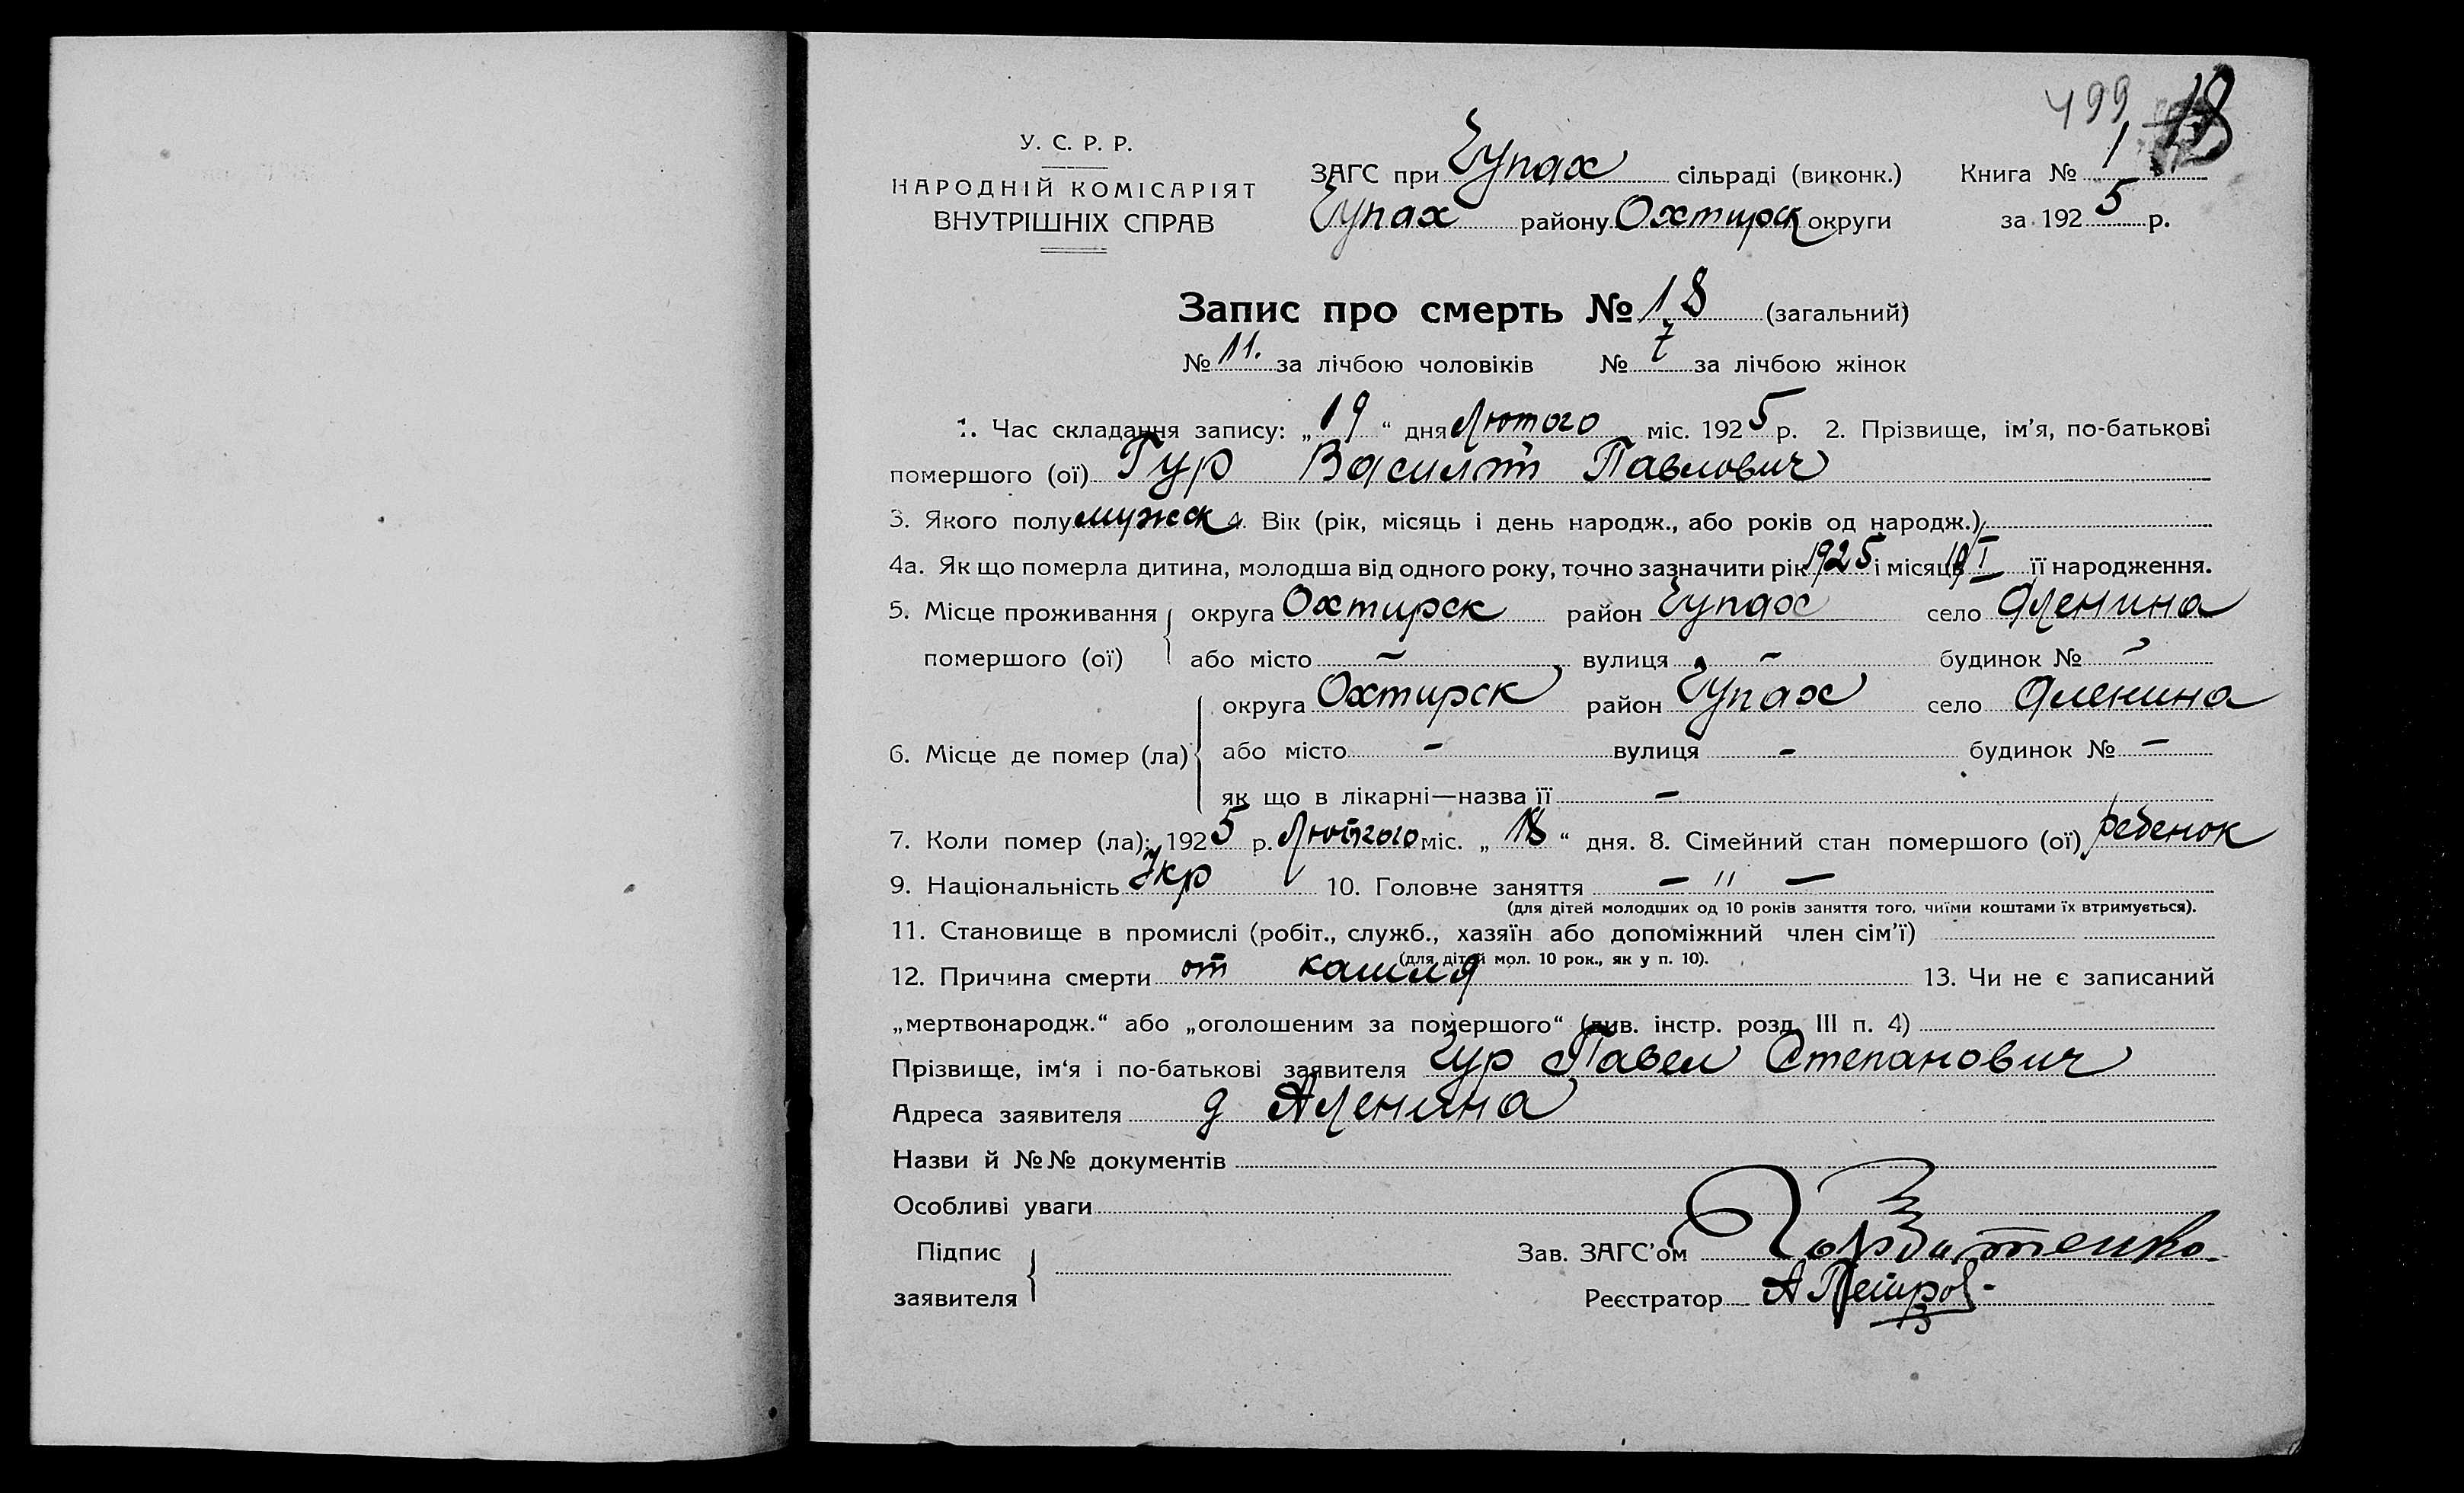 499 18
У. С. Р. Р.
НАРОДНІЙ КОМІСАРІЯТ
ВНУТРІШНІХ СПРАВ
ЗАГС при Чупах сільраді (виконк.) Книга № 1
Чупах району Охтирск округи за 1925 р.
Запис про смерть № 18 (загальний)
№ 11. за лічбою чоловіків № 7 за лічбою жінок
1. Час складання запису: „19“ дня Лютого міс. 1925 р. 2. Прізвище, ім'я, по-батькові
помершого (ої) Гур Василий Павлович
3. Якого полу мужск 4. Вік (рік, місяць і день народж., або років од народж.)
4а. Як що померла дитина, молодша від одного року, точно зазначити рік 1925 і місяць 19/I її народження.
5. Місце проживання округа Охтирск район Чупах село Аленина
помершого (ої) або місто – вулиця – будинок № –
округа Охтирск район Чупах село Аленина
6. Місце де помер (ла) або місто – вулиця – будинок № –
як що в лікарні—назва її –
7. Коли помер (ла): 1925 р. Лютого міс. „18“ дня. 8. Сімейний стан помершого (ої) ребенок
9. Національність Укр 10. Головне заняття – " –
(для дітей молодших од 10 років заняття того, чиїми коштами їх втримується).
11. Становище в промислі (робіт., служб., хазяїн або допоміжний член сім'ї)
(для дітей мол. 10 рок., як у п. 10).
12. Причина смерти от кашля 13. Чи не є записаний
„мертвонародж.“ або „оголошеним за помершого“ (див. інстр. розд. III п. 4)
Прізвище, ім'я і по-батькові заявителя Гур Павел Степанович
Адреса заявителя д Аленина
Назви й №№ документів
Особливі уваги
Підпис
заявителя
Зав. ЗАГС'ом Горбатенко
Реєстратор А Петров